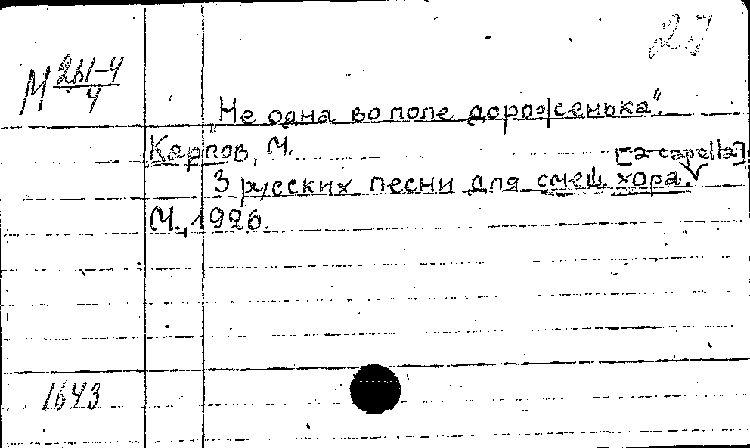 27
М 261-4/4
„Не одна во поле дороженька“.
Карпов, М.
[a capella]
3 русских песни для смеш. хора.
М., 1926.
1643